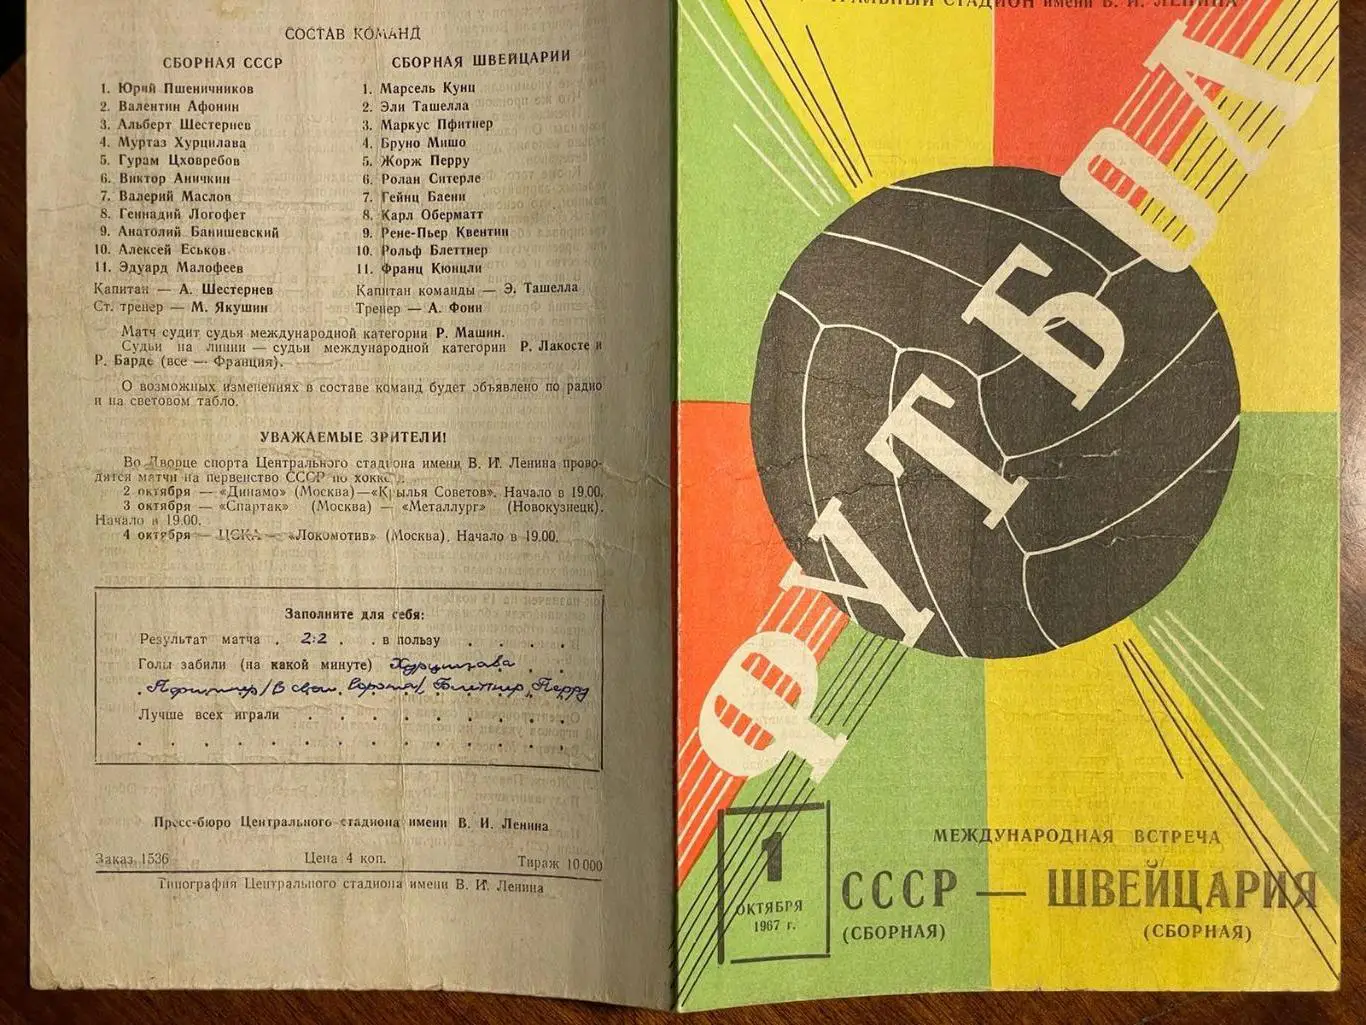 СОСТАВ КОМАНД
СБОРНАЯ СССР
1. Юрий Пшеничников
2. Валентин Афонин
3. Альберт Шестернев
4. Муртаз Хурцилава
5. Гурам Цховребов
6. Виктор Аничкин
7. Валерий Маслов
8. Геннадий Логофет
9. Анатолий Банишевский
10. Алексей Еськов
11. Эдуард Малофеев
Капитан — А. Шестернев
Ст. тренер — М. Якушин
СБОРНАЯ ШВЕЙЦАРИИ
1. Марсель Кунц
2. Эли Ташелла
3. Маркус Пфитнер
4. Бруно Мишо
5. Жорж Перру
6. Ролан Ситерле
7. Гейнц Баени
8. Карл Оберматт
9. Рене-Пьер Квентин
10. Рольф Блеттнер
11. Франц Кюнцли
Капитан команды — Э. Ташелла
Тренер — А. Фони
Матч судит судья международной категории Р. Машин.
Судьи на линии — судьи международной категории Р. Лакосте и
Р. Барде (все — Франция).
О возможных изменениях в составе команд будет объявлено по радио
и на световом табло.
УВАЖАЕМЫЕ ЗРИТЕЛИ!
Во Дворце спорта Центрального стадиона имени В. И. Ленина прово-
дятся матчи на первенство СССР по хоккею.
2 октября — «Динамо» (Москва)—«Крылья Советов». Начало в 19.00.
3 октября — «Спартак» (Москва) — «Металлург» (Новокузнецк).
Начало в 19.00.
4 октября — ЦСКА — «Локомотив» (Москва). Начало в 19.00.
Заполните для себя:
Результат матча . 2:2 . . в пользу . . . . .
Голы забили (на какой минуте) Хурцилава . .
Пфитнер/в свои ворота/ Блеттнер, Перру
Лучше всех играли . . . . . . . . .
Пресс-бюро Центрального стадиона имени В. И. Ленина
Заказ 1536 Цена 4 коп. Тираж 10 000
Типография Центрального стадиона имени В. И. Ленина
СТАДИОН имени В. И. ЛЕНИНА
ФУТБОЛ
МЕЖДУНАРОДНАЯ ВСТРЕЧА
1
ОКТЯБРЯ
1967 г.
СССР — ШВЕЙЦАРИЯ
(СБОРНАЯ) (СБОРНАЯ)